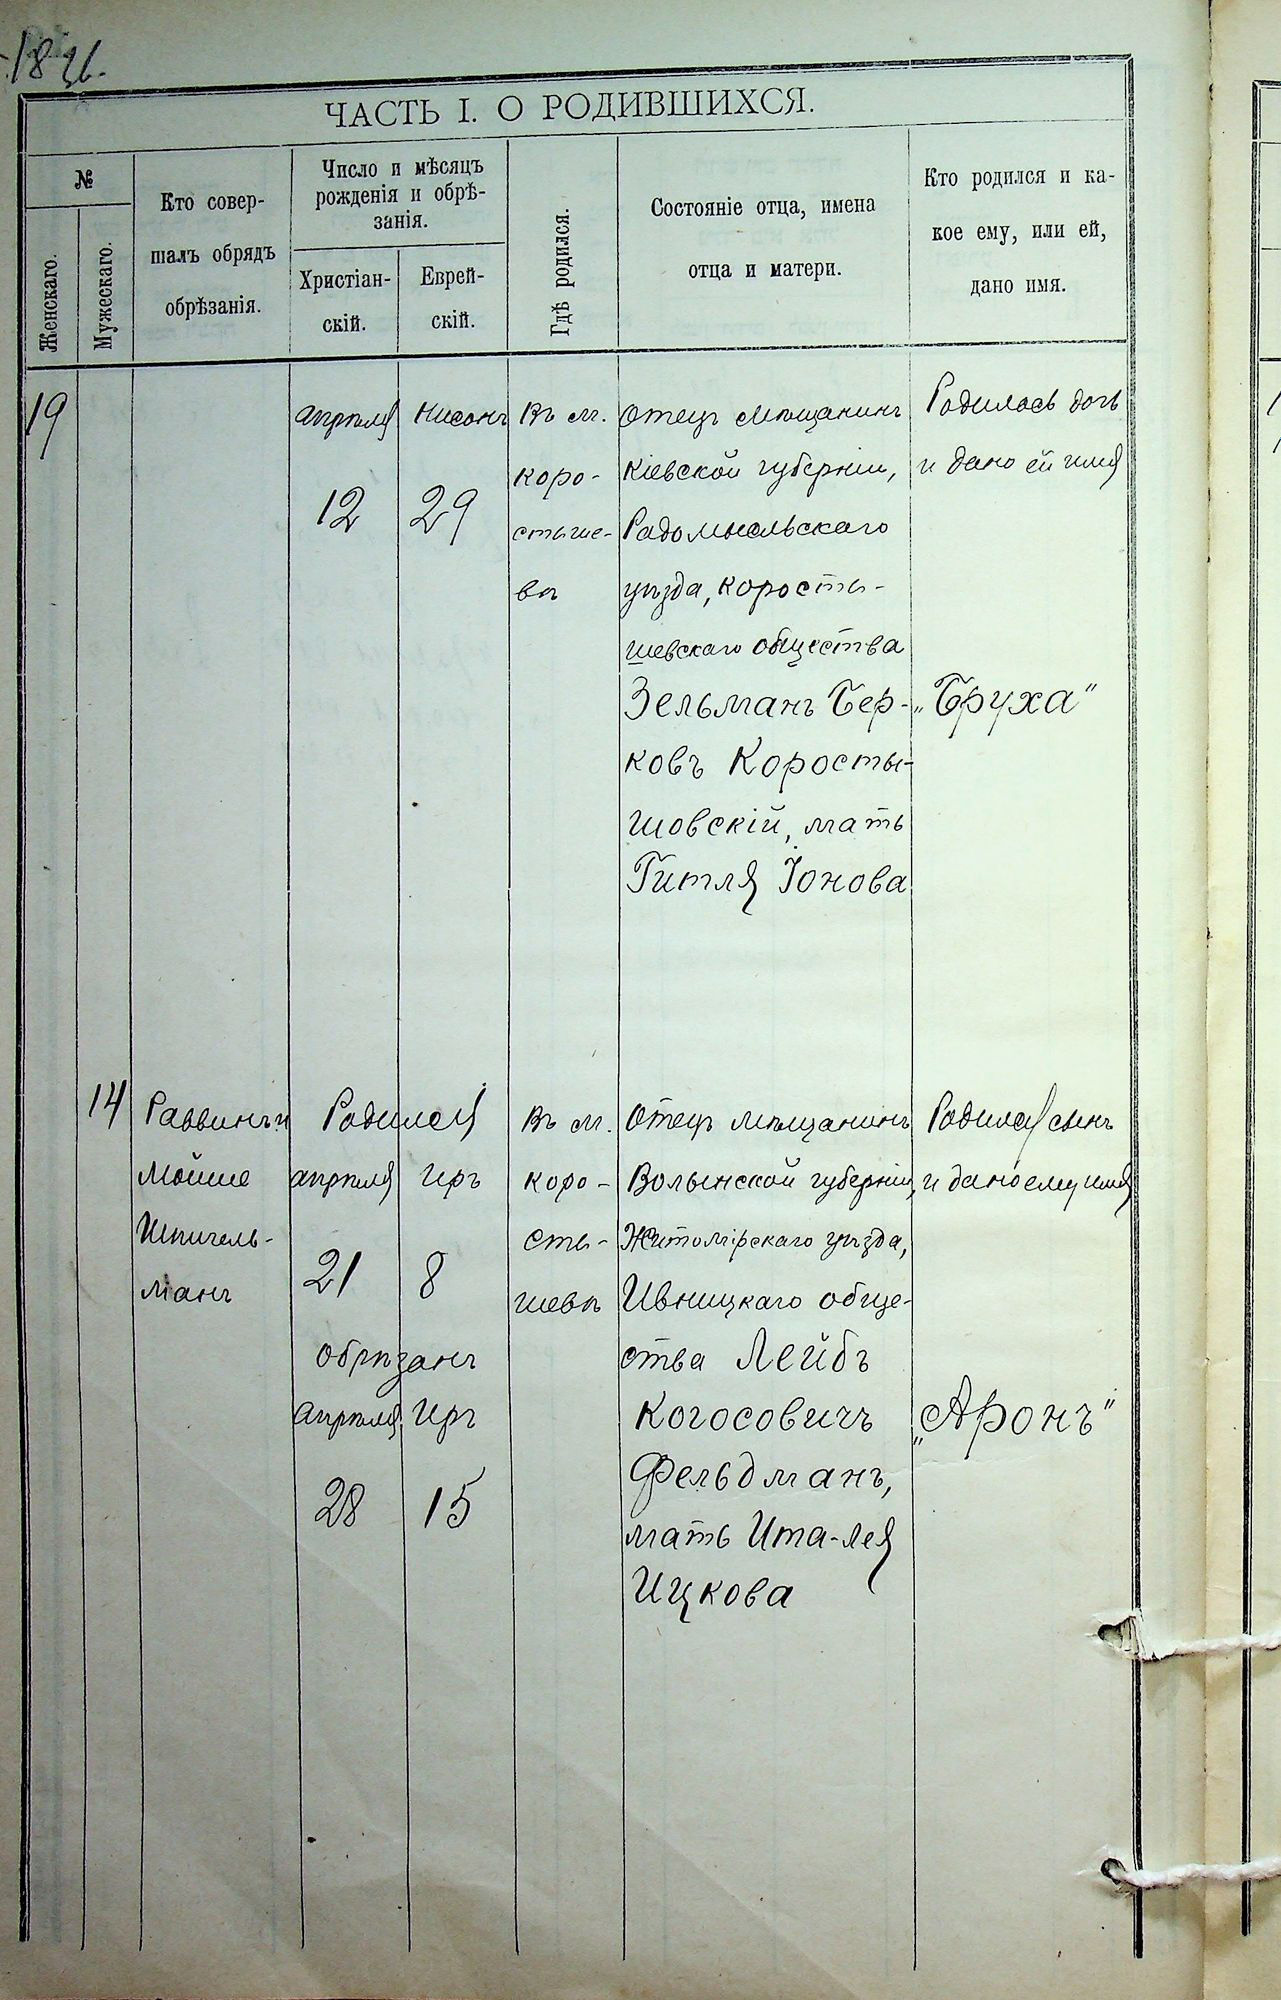 ЧАСТЬ I. О РОДИВШИХСЯ.
№
Женскаго.
Мужескаго.
Кто совер-
шалъ обрядъ
обрѣзанія.
Число и мѣсяцъ
рожденія и обрѣ-
занія.
Христіан-
скій.
Еврей-
скій.
Гдѣ родился.
Состояніе отца, имена
отца и матери.
Кто родился и ка-
кое ему, или ей,
дано имя.
19
апрѣля
12
Нисонъ
29
Въ м.
коро-
стыше-
вѣ
Отецъ мѣщанинъ
Кіевской губерніи,
Радомысльскаго
уѣзда, коросты-
шевскаго общества
Зельманъ Бер-
ковъ Коросты-
шовскій, мать
Гитля Іонова
Родилась дочь
и дано ей имя
„Бруха"
14
Раввинъ и
Мойше
Шпигель-
манъ
Родился
апрѣля Иръ
21 8
обрѣзанъ
апрѣля Иръ
28 15
Въ м.
коро-
сты-
шевѣ
Отецъ мѣщанинъ
Волынской губерніи,
Житомірскаго уѣзда,
Ивницкаго обще-
ства Лейбъ
Когосовичъ
Фельдманъ,
мать Ита-Лея
Ицкова
Родился сынъ
и дано ему имя
„Аронъ"